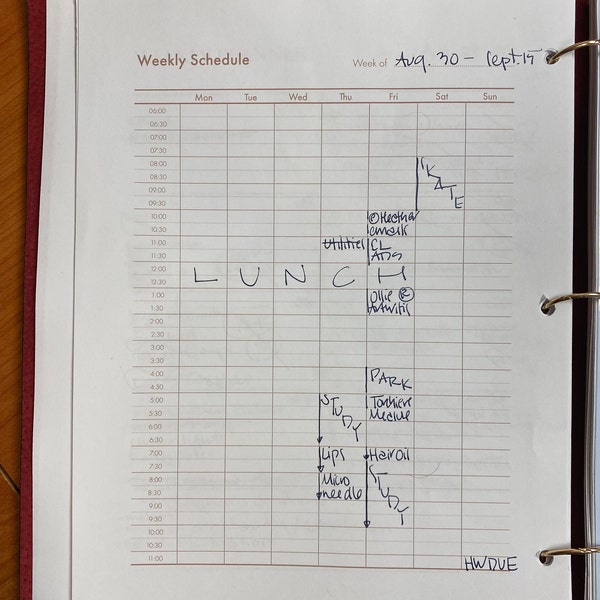 Weekly Schedule
Week of Aug. 30 – Sept.
Mon Tue Wed Thu Fri Sat Sun
06:00
06:30
07:00
07:30
08:00
SKATE
08:30
09:00
09:30
10:00
10:30
emails
11:00 Utilities CL
11:30 ADS
12:00 LUNCH
12:30
1:00 Ollie
1:30
2:00
2:30
3:00
3:30
4:00 PARK
4:30
5:00 STUDY
5:30
6:00
6:30
7:00 Lips Hair oil
7:30 STUDY
8:00 Micro
8:30 needle
9:00
9:30
10:00
10:30
11:00 HW DUE